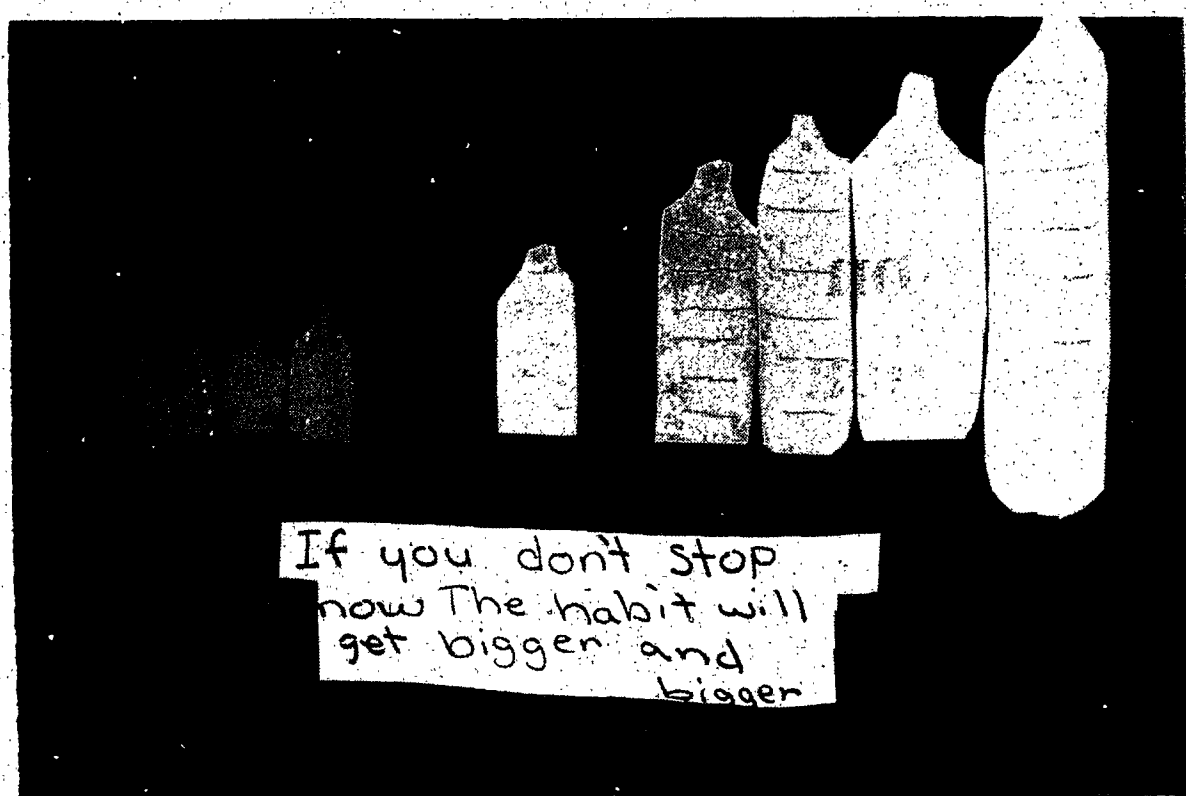 If you don't stop
now The habit will
get bigger and
bigger